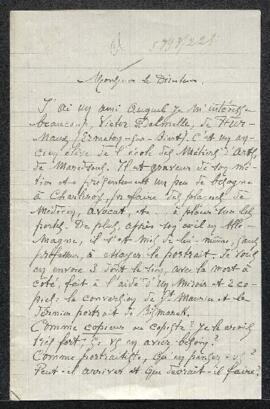 5798/228
Monsieur le Directeur
J'ai un ami auquel je m'intéresse
beaucoup, Victor Dalbielle, de
C'est un an-
cien élève de l'école des Métiers d'art,
de Maredsous. Il est graveur de son mé-
tier et a présentement un peu de besogne
à Charleroi, pr faire des plaques de
avocat, etc à placer sur les
portes. De plus, après son exil en Alle-
magne, il s'est mis de lui-même, sans
professeur, à essayer le portrait. Je vous
en envoie 3 dont le sien, avec la mort à
côté, fait à l'aide d'un miroir et 2 co-
pies: la conversion de St Maurin et le
dernier portrait de Bismarck.
Comme copieur ou copiste? Je le crois
très fort; en avez besoin?
Comme portraitiste, qu'en pensez-vs?
Peut-il arriver et que devrait-il faire?